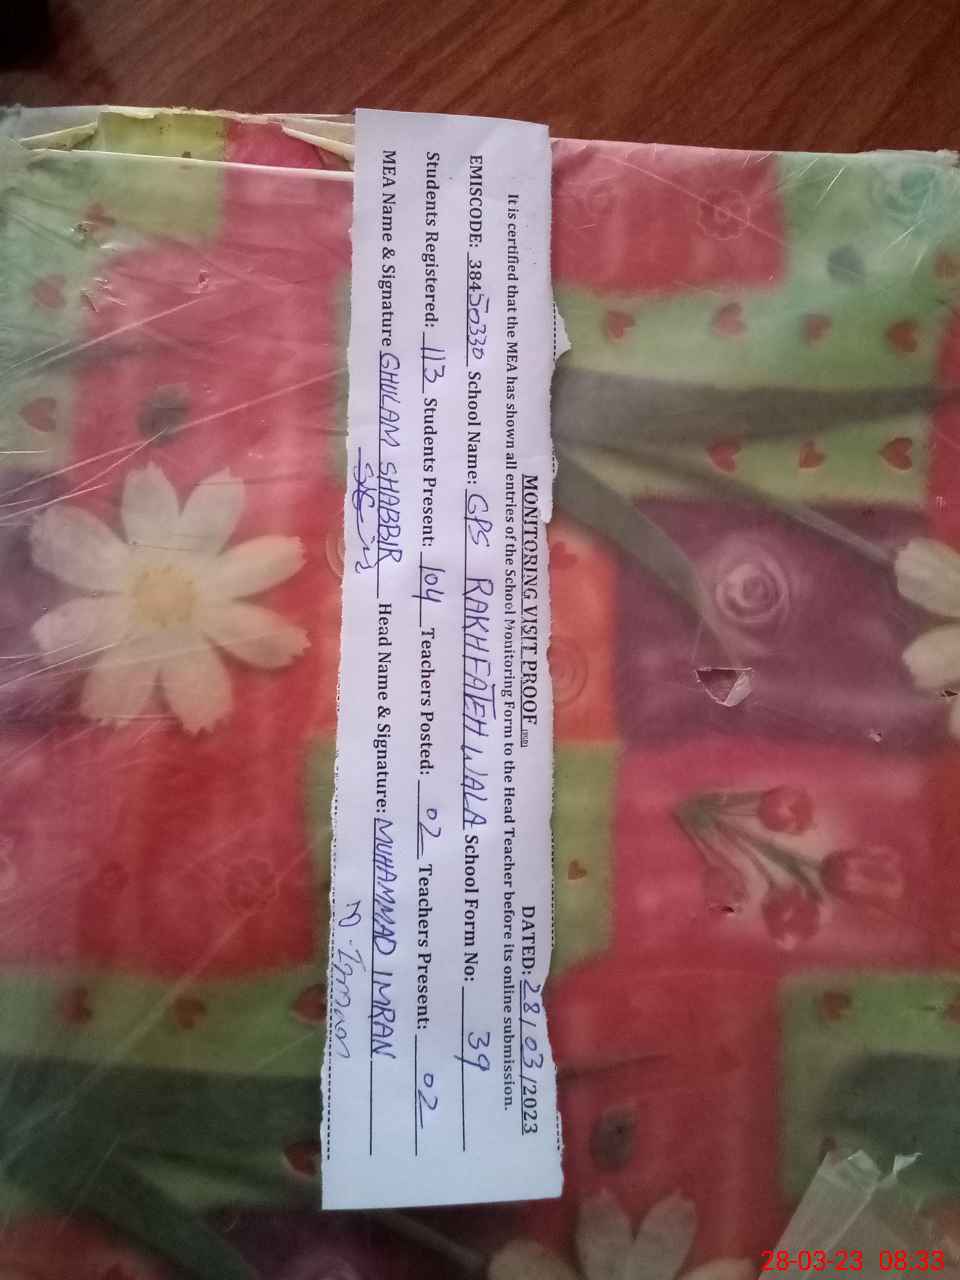 MONITORING VISIT PROOF DATED: 28/03/2023
It is certified that the MEA has shown all entries of the School Monitoring Form to the Head Teacher before its online submission.
EMISCODE: 38450330 School Name: GPS RAKH FATEH WALA School Form No: 39
Students Registered: 113 Students Present: 104 Teachers Posted: 02 Teachers Present: 02
MEA Name & Signature GHULAM SHABBIR Head Name & Signature: MUHAMMAD IMRAN
M. Imran
28-03-23 08:33